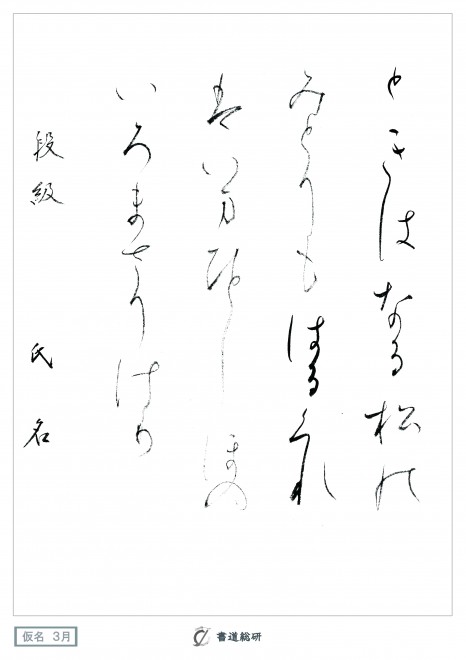 ときはなる松の
みとりもはるくれ
はいまひとしほの
いろまさりけり
段級 氏名
仮名 3月
書道総研